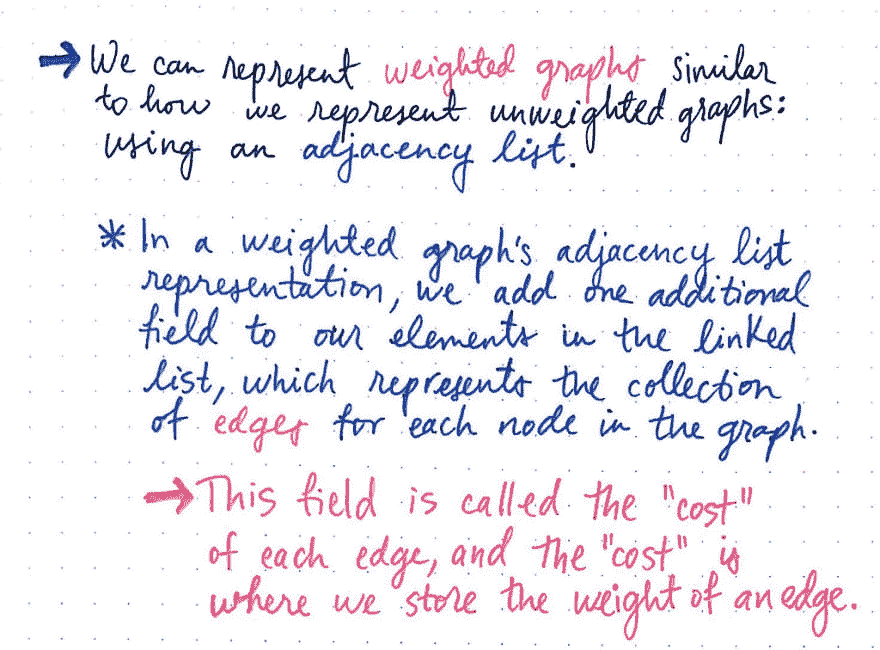 → We can represent weighted graphs similar
to how we represent unweighted graphs:
using an adjacency list.
* In a weighted graph's adjacency list
representation, we add one additional
field to our elements in the linked
list, which represents the collection
of edges for each node in the graph.
→ This field is called the "cost"
of each edge, and the "cost" is
where we store the weight of an edge.